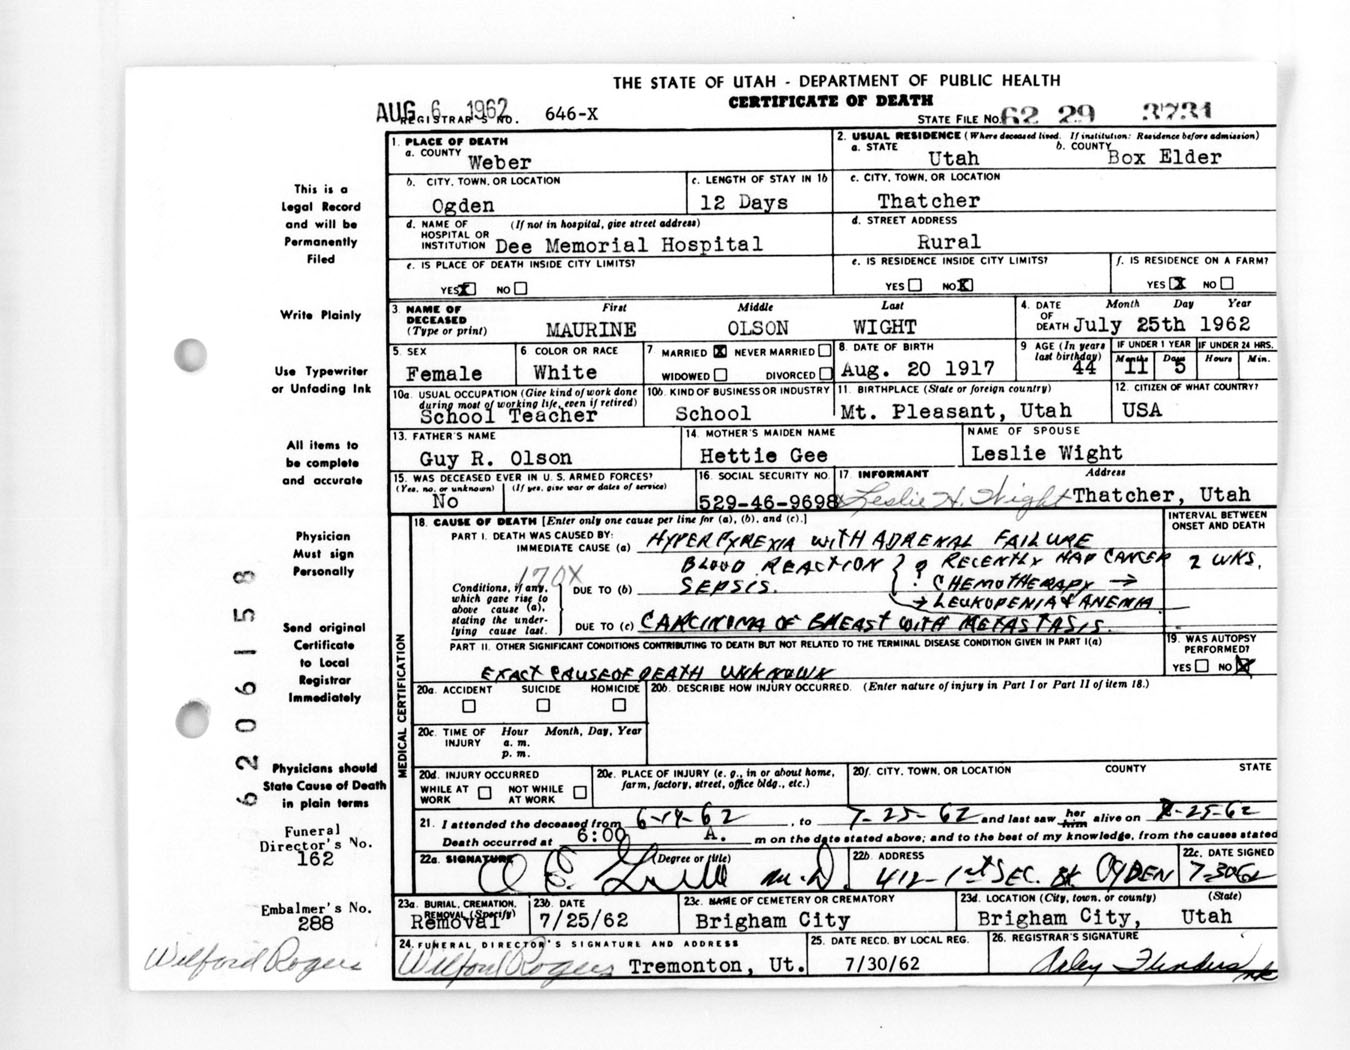 THE STATE OF UTAH - DEPARTMENT OF PUBLIC HEALTH
CERTIFICATE OF DEATH
AUG 6 1962
REGISTRAR'S NO. 646-X
STATE FILE NO. 62 29 3731
1. PLACE OF DEATH
a. COUNTY Weber
2. USUAL RESIDENCE (Where deceased lived. If institution: Residence before admission)
a. STATE Utah b. COUNTY Box Elder
b. CITY, TOWN, OR LOCATION Ogden
c. LENGTH OF STAY IN 1b 12 Days
c. CITY, TOWN, OR LOCATION Thatcher
d. NAME OF HOSPITAL OR INSTITUTION (If not in hospital, give street address) Dee Memorial Hospital
d. STREET ADDRESS Rural
e. IS PLACE OF DEATH INSIDE CITY LIMITS? YES X NO
e. IS RESIDENCE INSIDE CITY LIMITS? YES NO X
f. IS RESIDENCE ON A FARM? YES X NO
3. NAME OF DECEASED (Type or print) First Middle Last
MAURINE OLSON WIGHT
4. DATE OF DEATH Month Day Year
July 25th 1962
5. SEX Female
6. COLOR OR RACE White
7. MARRIED X NEVER MARRIED
WIDOWED DIVORCED
8. DATE OF BIRTH Aug. 20 1917
9. AGE (In years last birthday) 44
IF UNDER 1 YEAR Months 11 Days 5
IF UNDER 24 HRS. Hours Min.
10a. USUAL OCCUPATION (Give kind of work done during most of working life, even if retired) School Teacher
10b. KIND OF BUSINESS OR INDUSTRY School
11. BIRTHPLACE (State or foreign country) Mt. Pleasant, Utah
12. CITIZEN OF WHAT COUNTRY? USA
13. FATHER'S NAME Guy R. Olson
14. MOTHER'S MAIDEN NAME Hettie Gee
NAME OF SPOUSE Leslie Wight
15. WAS DECEASED EVER IN U. S. ARMED FORCES?
(Yes, no, or unknown) (If yes, give war or dates of service)
No
16. SOCIAL SECURITY NO. 529-46-9698
17. INFORMANT Address
Leslie H. Wight Thatcher, Utah
MEDICAL CERTIFICATION
18. CAUSE OF DEATH [Enter only one cause per line for (a), (b), and (c).]
INTERVAL BETWEEN ONSET AND DEATH
PART I. DEATH WAS CAUSED BY:
IMMEDIATE CAUSE (a) HYPERPYREXIA WITH ADRENAL FAILURE
170X
BLOOD REACTION } ? RECENTLY HAD CANCER 2 WKS.
Conditions, if any, which gave rise to above cause (a), stating the underlying cause last.
DUE TO (b) SEPSIS. CHEMOTHERAPY →
→ LEUKOPENIA & ANEMIA
DUE TO (c) CARCINOMA OF BREAST WITH METASTASIS.
PART II. OTHER SIGNIFICANT CONDITIONS CONTRIBUTING TO DEATH BUT NOT RELATED TO THE TERMINAL DISEASE CONDITION GIVEN IN PART I(a)
EXACT CAUSE OF DEATH UNKNOWN
19. WAS AUTOPSY PERFORMED?
YES NO X
20a. ACCIDENT SUICIDE HOMICIDE
20b. DESCRIBE HOW INJURY OCCURRED. (Enter nature of injury in Part I or Part II of item 18.)
20c. TIME OF INJURY Hour Month, Day, Year
a. m.
p. m.
20d. INJURY OCCURRED
WHILE AT WORK NOT WHILE AT WORK
20e. PLACE OF INJURY (e. g., in or about home, farm, factory, street, office bldg., etc.)
20f. CITY, TOWN, OR LOCATION COUNTY STATE
21. I attended the deceased from 6-19-62, to 7-25-62 and last saw her him alive on 7-25-62
Death occurred at 6:00 A. m on the date stated above; and to the best of my knowledge, from the causes stated
22a. SIGNATURE (Degree or title) M.D.
22b. ADDRESS 412 - 1st SEC. BK OGDEN
22c. DATE SIGNED 7-30-62
23a. BURIAL, CREMATION, REMOVAL (Specify) Removal
23b. DATE 7/25/62
23c. NAME OF CEMETERY OR CREMATORY Brigham City
23d. LOCATION (City, town, or county) (State)
Brigham City, Utah
24. FUNERAL DIRECTOR'S SIGNATURE AND ADDRESS
Wilford Rogers Tremonton, Ut.
25. DATE RECD. BY LOCAL REG. 7/30/62
26. REGISTRAR'S SIGNATURE
This is a
Legal Record
and will be
Permanently
Filed
Write Plainly
Use Typewriter
or Unfading Ink
All items to
be complete
and accurate
Physician
Must sign
Personally
Send original
Certificate
to Local
Registrar
Immediately
Physicians should
State Cause of Death
in plain terms
Funeral
Director's No.
162
Embalmer's No.
288
Wilford Rogers
6206158